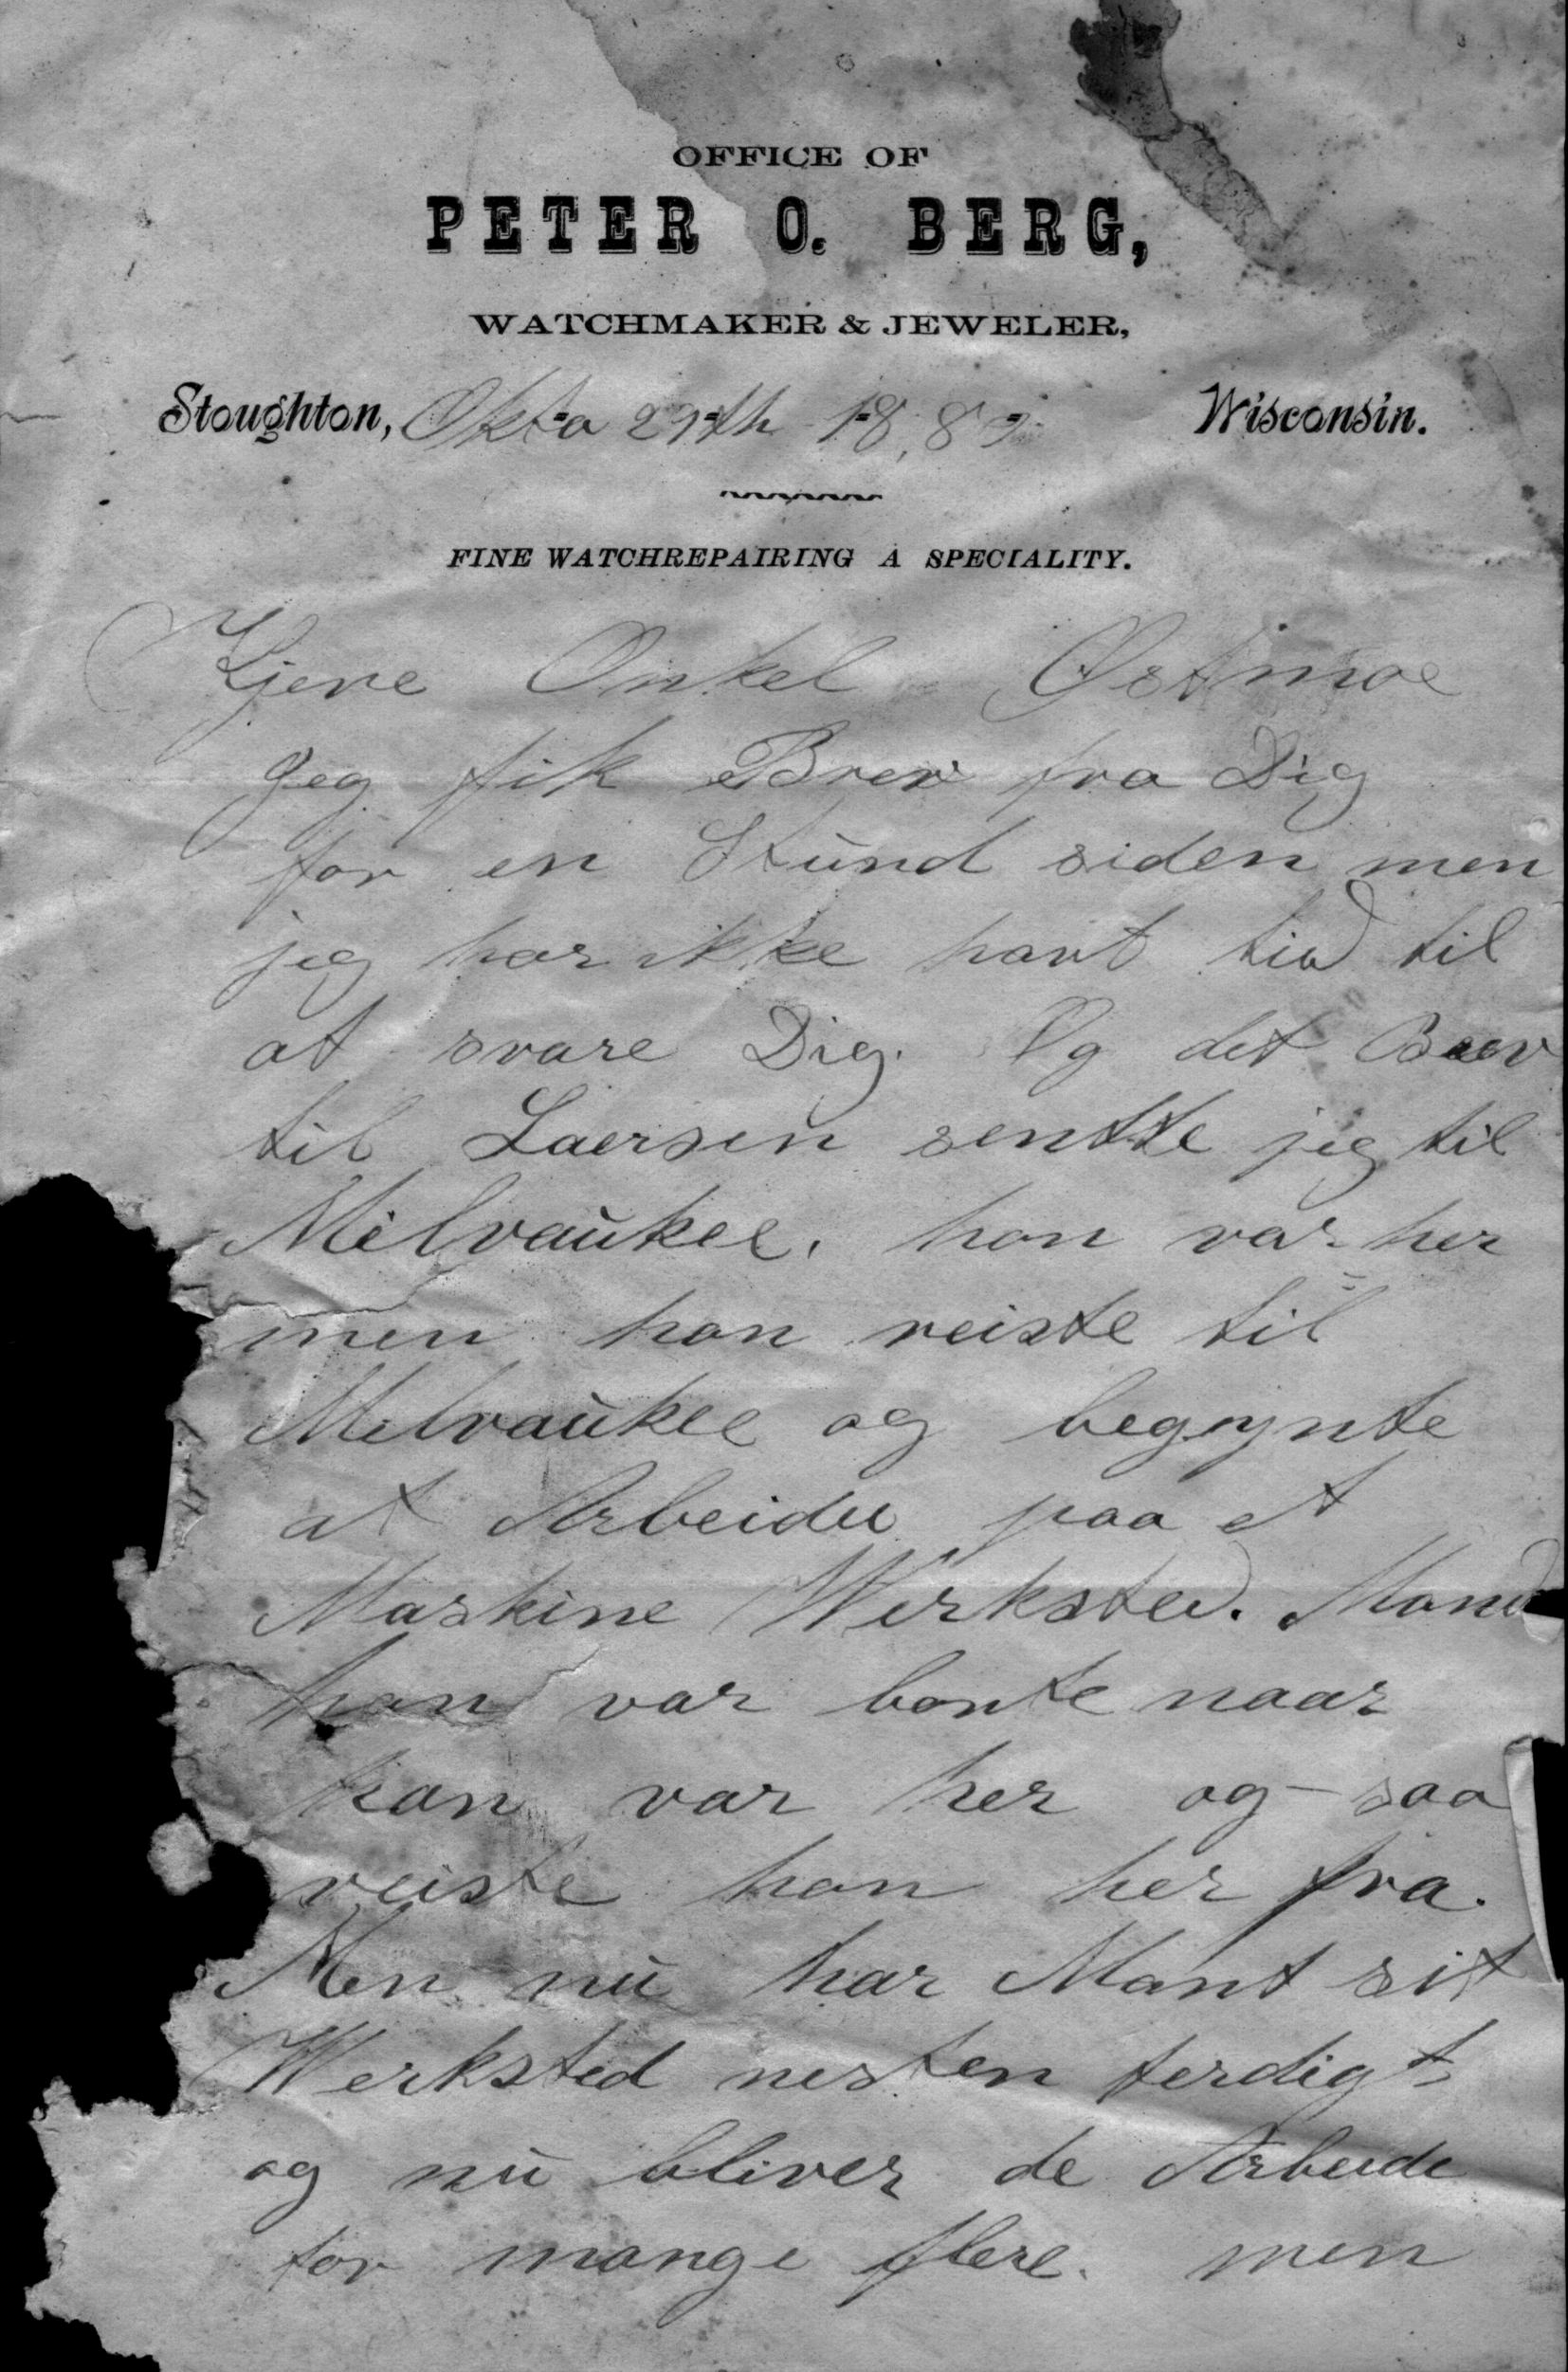 OFFICE OF
PETER O. BERG,
WATCHMAKER & JEWELER,
Stoughton, Okta 29th 18,83 Wisconsin.
FINE WATCHREPAIRING A SPECIALITY.
Kjere Onkel Østmoe
Jeg fik Brev fra Dig
for en Stund siden men
jeg har ikke havt tid til
at svare Dig. Og det Brev
til Laersen sentte jeg til
Milvaukee. han var her
men han reiste til
Milvaukee og begynte
at Arbeide paa et
Maskine Werksted. Mand
han var bonte naar
han var her og saa
reiste han her fra.
Men nu har Mant sit
Werksted nesten ferdigt
og nu bliver de Arbeide
for mange flere. men